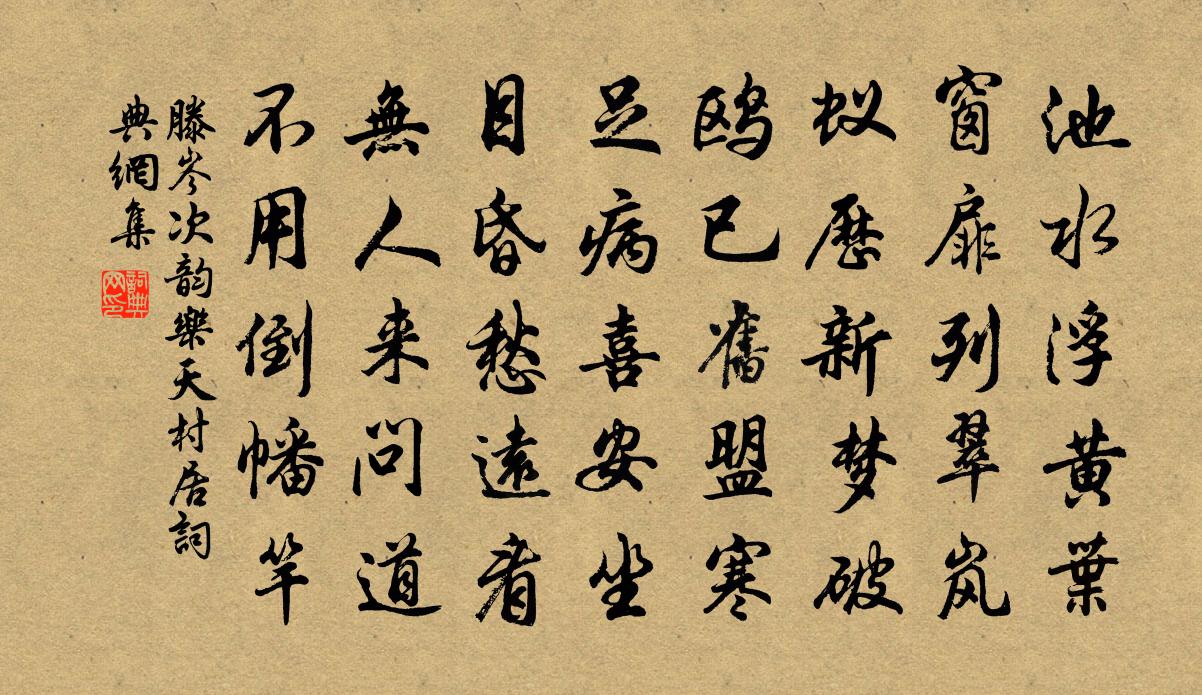 池水浮黄葉
窗扉列翠岚
蚁歷新梦破
鸥已舊盟寒
足病喜安坐
目昏愁遠看
無人来问道
不用倒幡竿
滕岑次韵樂天村居詞
典網集
詞典
网印